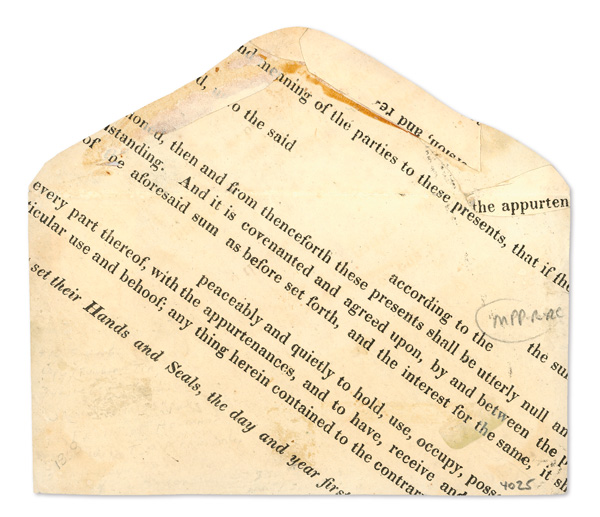 nd meaning of the parties to these presents, that if the
d, to the said
according to the
the su
ioned, then and from thenceforth these presents shall be utterly null an
standing. And it is covenanted and agreed upon, by and between the p
of aforesaid sum as before set forth, and the interest for the same, it sh
peaceably and quietly to hold, use, occupy, poss
every part thereof, with the appurtenances, and to have, receive and
icular use and behoof; any thing herein contained to the contrar
set their Hands and Seals, the day and year first
and re
the appurten
4025